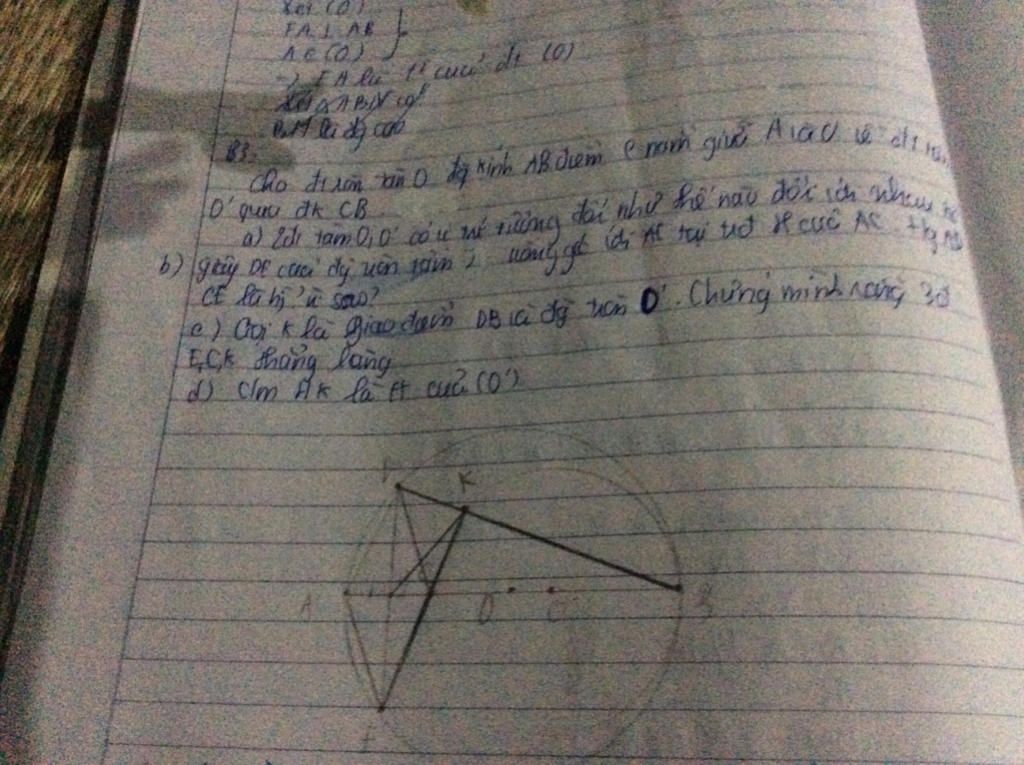 Xét (O)
FA ⊥ AB
A ∈ (O) }
=) FA là tt của đt (O)
Xét △ABN có
BM là đg cao
B3:
Cho đt tròn tâm O đg kính AB điểm C nằm giữa A và O vẽ đt tròn
O' qua đk CB
a) 2đt tâm O, O' có vị trí tương đối như thế nào đối với nhau
b) giây DE của đg tròn tâm vuông góc với AC tại H của AC. Tứg
CE là hj' vì sao?
c) Gọi K là giao điểm DB và đg tròn O'. Chứng minh rằng 3đ
E,C,K thẳng hàng
d) C/m HK là tt của (O')
K
A
O
O'
B
E